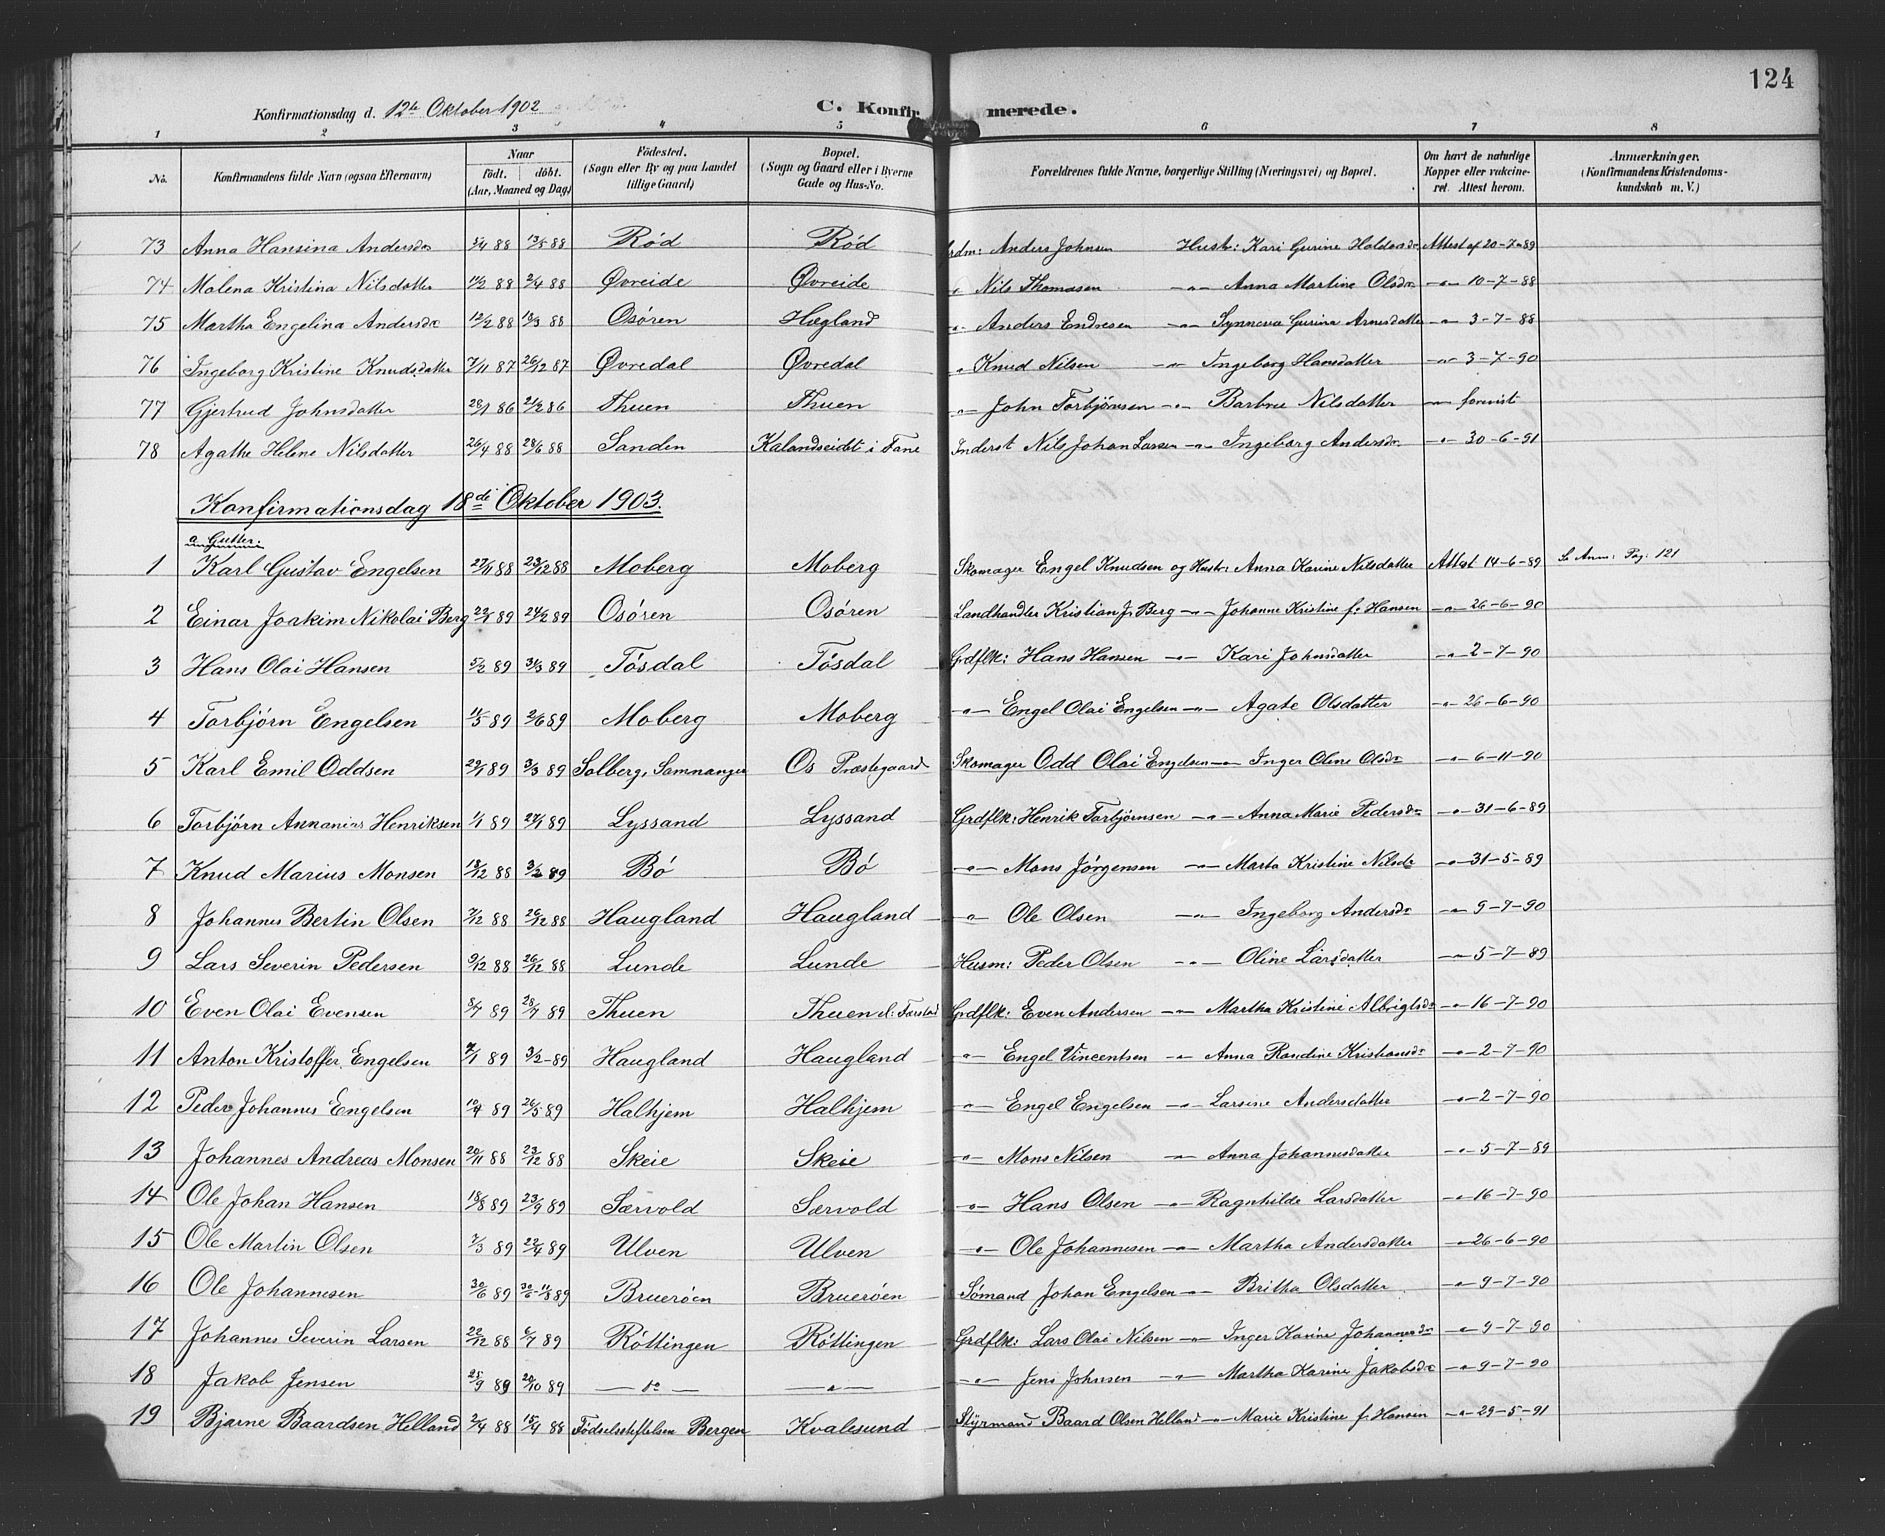 124
Konfirmationsdag d. 12te Oktober 1902
C. Konfir merede.
1 2 3 4 5 6 7 8
No. Konfirmandens fulde Navn (ogsaa Efternavn) Naar født. døbt. (Aar, Maaned og Dag) Födested. (Sogn eller By og paa Landet tillige Gaard) Bopæl. (Sogn og Gaard eller i Byerne Gade og Hus-No. Forældrenes fulde Navne, borgerlige Stilling (Næringsvei) og Bopæl. Om havt de naturlige Kopper eller vakcineret. Attest herom. Anmærkninger. (Konfirmandens Kristendomskundskab m. V.)
73 Anna Hansina Andersdr 5/4 88 13/5 88 Rød Rød Grdm: Anders Johnsen Hustr: Kari Gurine Attest af 20-7-89
74 Malena Kristina Nilsdatter 11/2 88 2/4 88 Øvreide Øvreide " Nils Thomasen -"- Anna Martine Olsdr -"- 10-7-88
75 Martha Engelina Andersdr 12/2 88 18/3 88 Osøren Hægland -"- Anders Endresen -"- Synneva Gurina Arnesdatter -"- 3-7-88
76 Ingeborg Kristine Knudsdatter 7/11 87 26/12 87 Øvredal Øvredal " Knud Nilsen -"- Ingeborg Hansdatter -"- 3-7-90
77 Gjertrud Johnsdatter 28/1 86 21/2 86 Thuen Thuen -"- John Torbjørnsen -"- Barbro Nilsdatter -"- forevist
78 Agathe Helene Nilsdatter 26/4 88 28/6 88 Sanden Kalandseidet i Fane Inderst Nils Johan Larsen -"- Ingeborg Andersdr -"- 30-6-91
Konfirmationsdag 18de Oktober 1903.
a. Gutter:
1 Karl Gustav Engelsen 27/11 88 23/12 88 Moberg Moberg Skomager Engel Knudsen og Hustr Anna Karine Nilsdatter Attest 14-6-89 Se Anm: Pag: 121
2 Einar Joakim Nikolai Berg 22/1 89 24/2 89 Osøren Osøren Landhandler Kristian J. Berg -"- Johanne Kristine f. Hansen -"- 26-6-90
3 Hans Olai Hansen 5/2 89 31/3 89 Tøsdal Tøsdal Grdflk: Hans Hansen -"- Kari Johnsdatter -"- 2-7-90
4 Torbjørn Engelsen 11/5 89 2/6 89 Moberg Moberg -"- Engel Olai Engelsen -"- Agate Olsdatter -"- 26-6-90
5 Karl Emil Oddsen 29/1 89 3/3 89 Solberg, Samnanger Os Præstegaard Skomager Odd Olai Engelsen -"- Inger Oline Olsdr -"- 6-11-90
6 Torbjørn Annanias Henriksen 1/1 89 27/1 89 Lyssand Lyssand Grdflk: Henrik Torbjørnsen -"- Anna Marie Pedersdr -"- 31-6-89
7 Knud Marius Monsen 18/12 88 3/2 89 Bø Bø -"- Mons Jørgensen -"- Marta Kristine Nilsdr -"- 31-5-89
8 Johannes Bertin Olsen 7/12 88 26/12 88 Haugland Haugland -"- Ole Olsen -"- Ingeborg Andersdr -"- 9-7-90
9 Lars Severin Pedersen 9/12 88 26/12 88 Lunde Lunde Husm: Peder Olsen -"- Oline Larsdatter -"- 5-7-89
10 Even Olai Evensen 8/7 89 28/7 89 Thuen Thuen Grdflk: Even Andersen -"- Martha Kristine Albrigtsdr -"- 16-7-90
11 Anton Kristoffer Engelsen 7/1 89 3/2-89 Haugland Haugland -"- Engel Vincentsen -"- Anna Randine Kristiansdr -"- 2-7-90
12 Peder Johannes Engelsen 10/4 89 26/5 89 Halhjem Halhjem -"- Engel Engelsen -"- Larsine Andersdatter -"- 2-7-90
13 Johannes Andreas Monsen 20/11 88 23/12 88 Skeie Skeie -"- Mons Nilsen -"- Anna Johannesdatter -"- 5-7-89
14 Ole Johan Hansen 18/8 89 23/9 89 Særvold Særvold -"- Hans Olsen -"- Ragnhilde Larsdatter -"- 16-7-90
15 Ole Martin Olsen 7/3 89 22/4 89 Ulven Ulven -"- Ole Johannesen -"- Martha Andersdatter -"- 26-6-90
16 Ole Johannesen 30/6 89 30/6-11/8 89 Bruerøen Bruerøen Sømand Johan Engelsen -"- Britha Olsdatter -"- 9-7-90
17 Johannes Severin Larsen 22/12 88 6/7 89 Røttingen Røttingen Grdflk: Lars Olai Nilsen -"- Inger Karine Johannesdr -"- 9-7-90
18 Jakob Jensen 25/9 89 20/10 89 -"- -"- -"- Jens Johnsen -"- Martha Karine Jakobsdr -"- 9-7-90
19 Bjarne Baardsen Helland 2/4 88 15/4 88 Fødselsstiftelsen Bergen Kvalesund Styrmand Baard Olsen Helland -"- Marie Kristine f. Hansen -"- 29-5-91